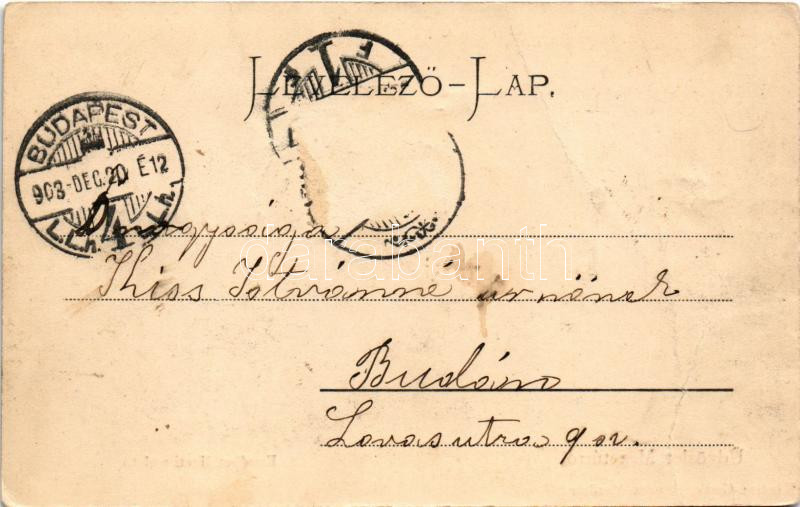 LEVELEZŐ-LAP.
BUDAPEST
903-DEC.20 É12
L.L.h. 4 L.h.
Őnagysága
Kiss Istvánné úrnőnek
Budán
Lovas utca 9 sz.
darabanth